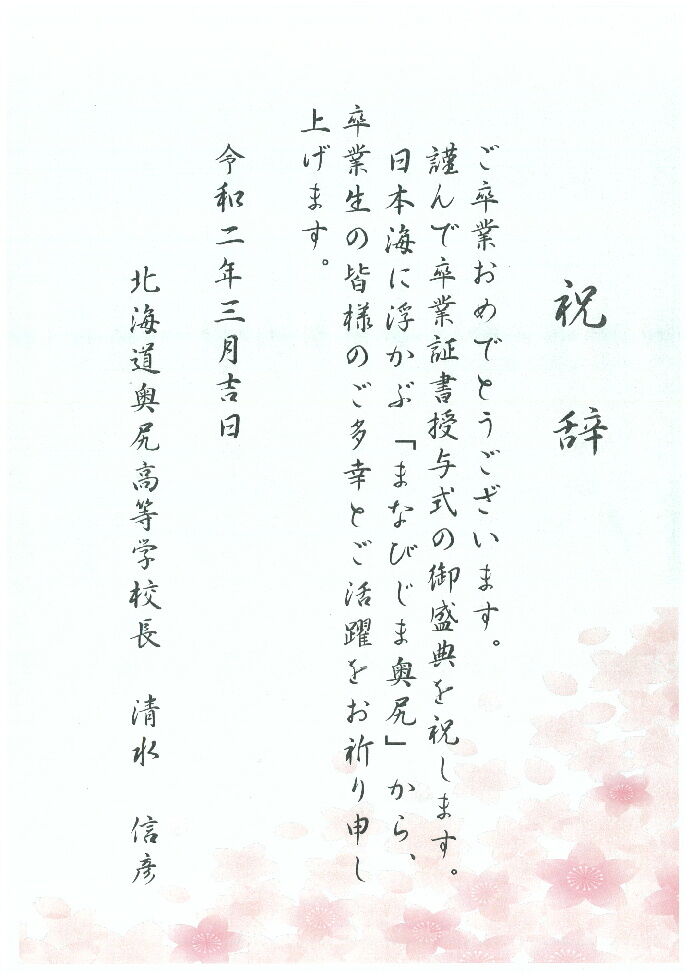 祝辞
ご卒業おめでとうございます。
謹んで卒業証書授与式の御盛典を祝します。
日本海に浮かぶ「まなびじま奥尻」から、
卒業生の皆様のご多幸とご活躍をお祈り申し
上げます。
令和二年三月吉日
北海道奥尻高等学校長　清水　信彦